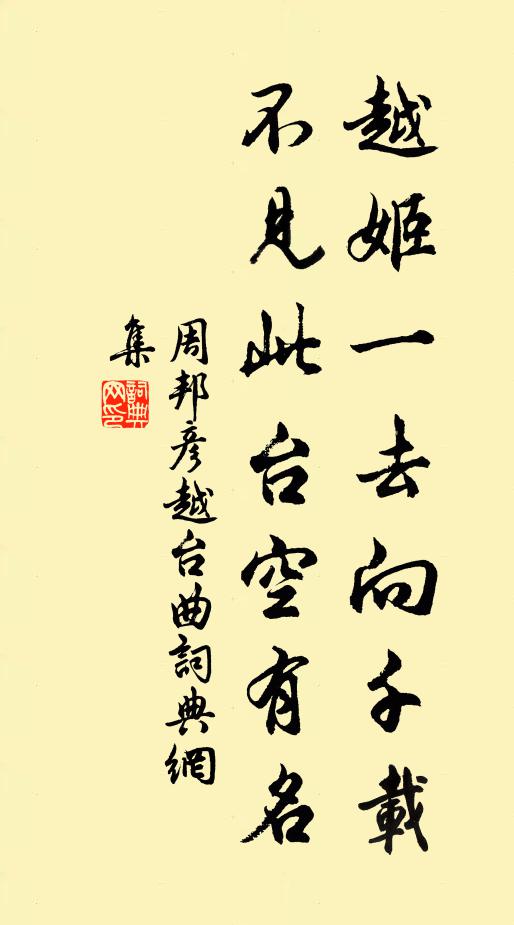 越姬一去向千載
不見此台空有名
周邦彥越台曲詞典網
集
詞典網印